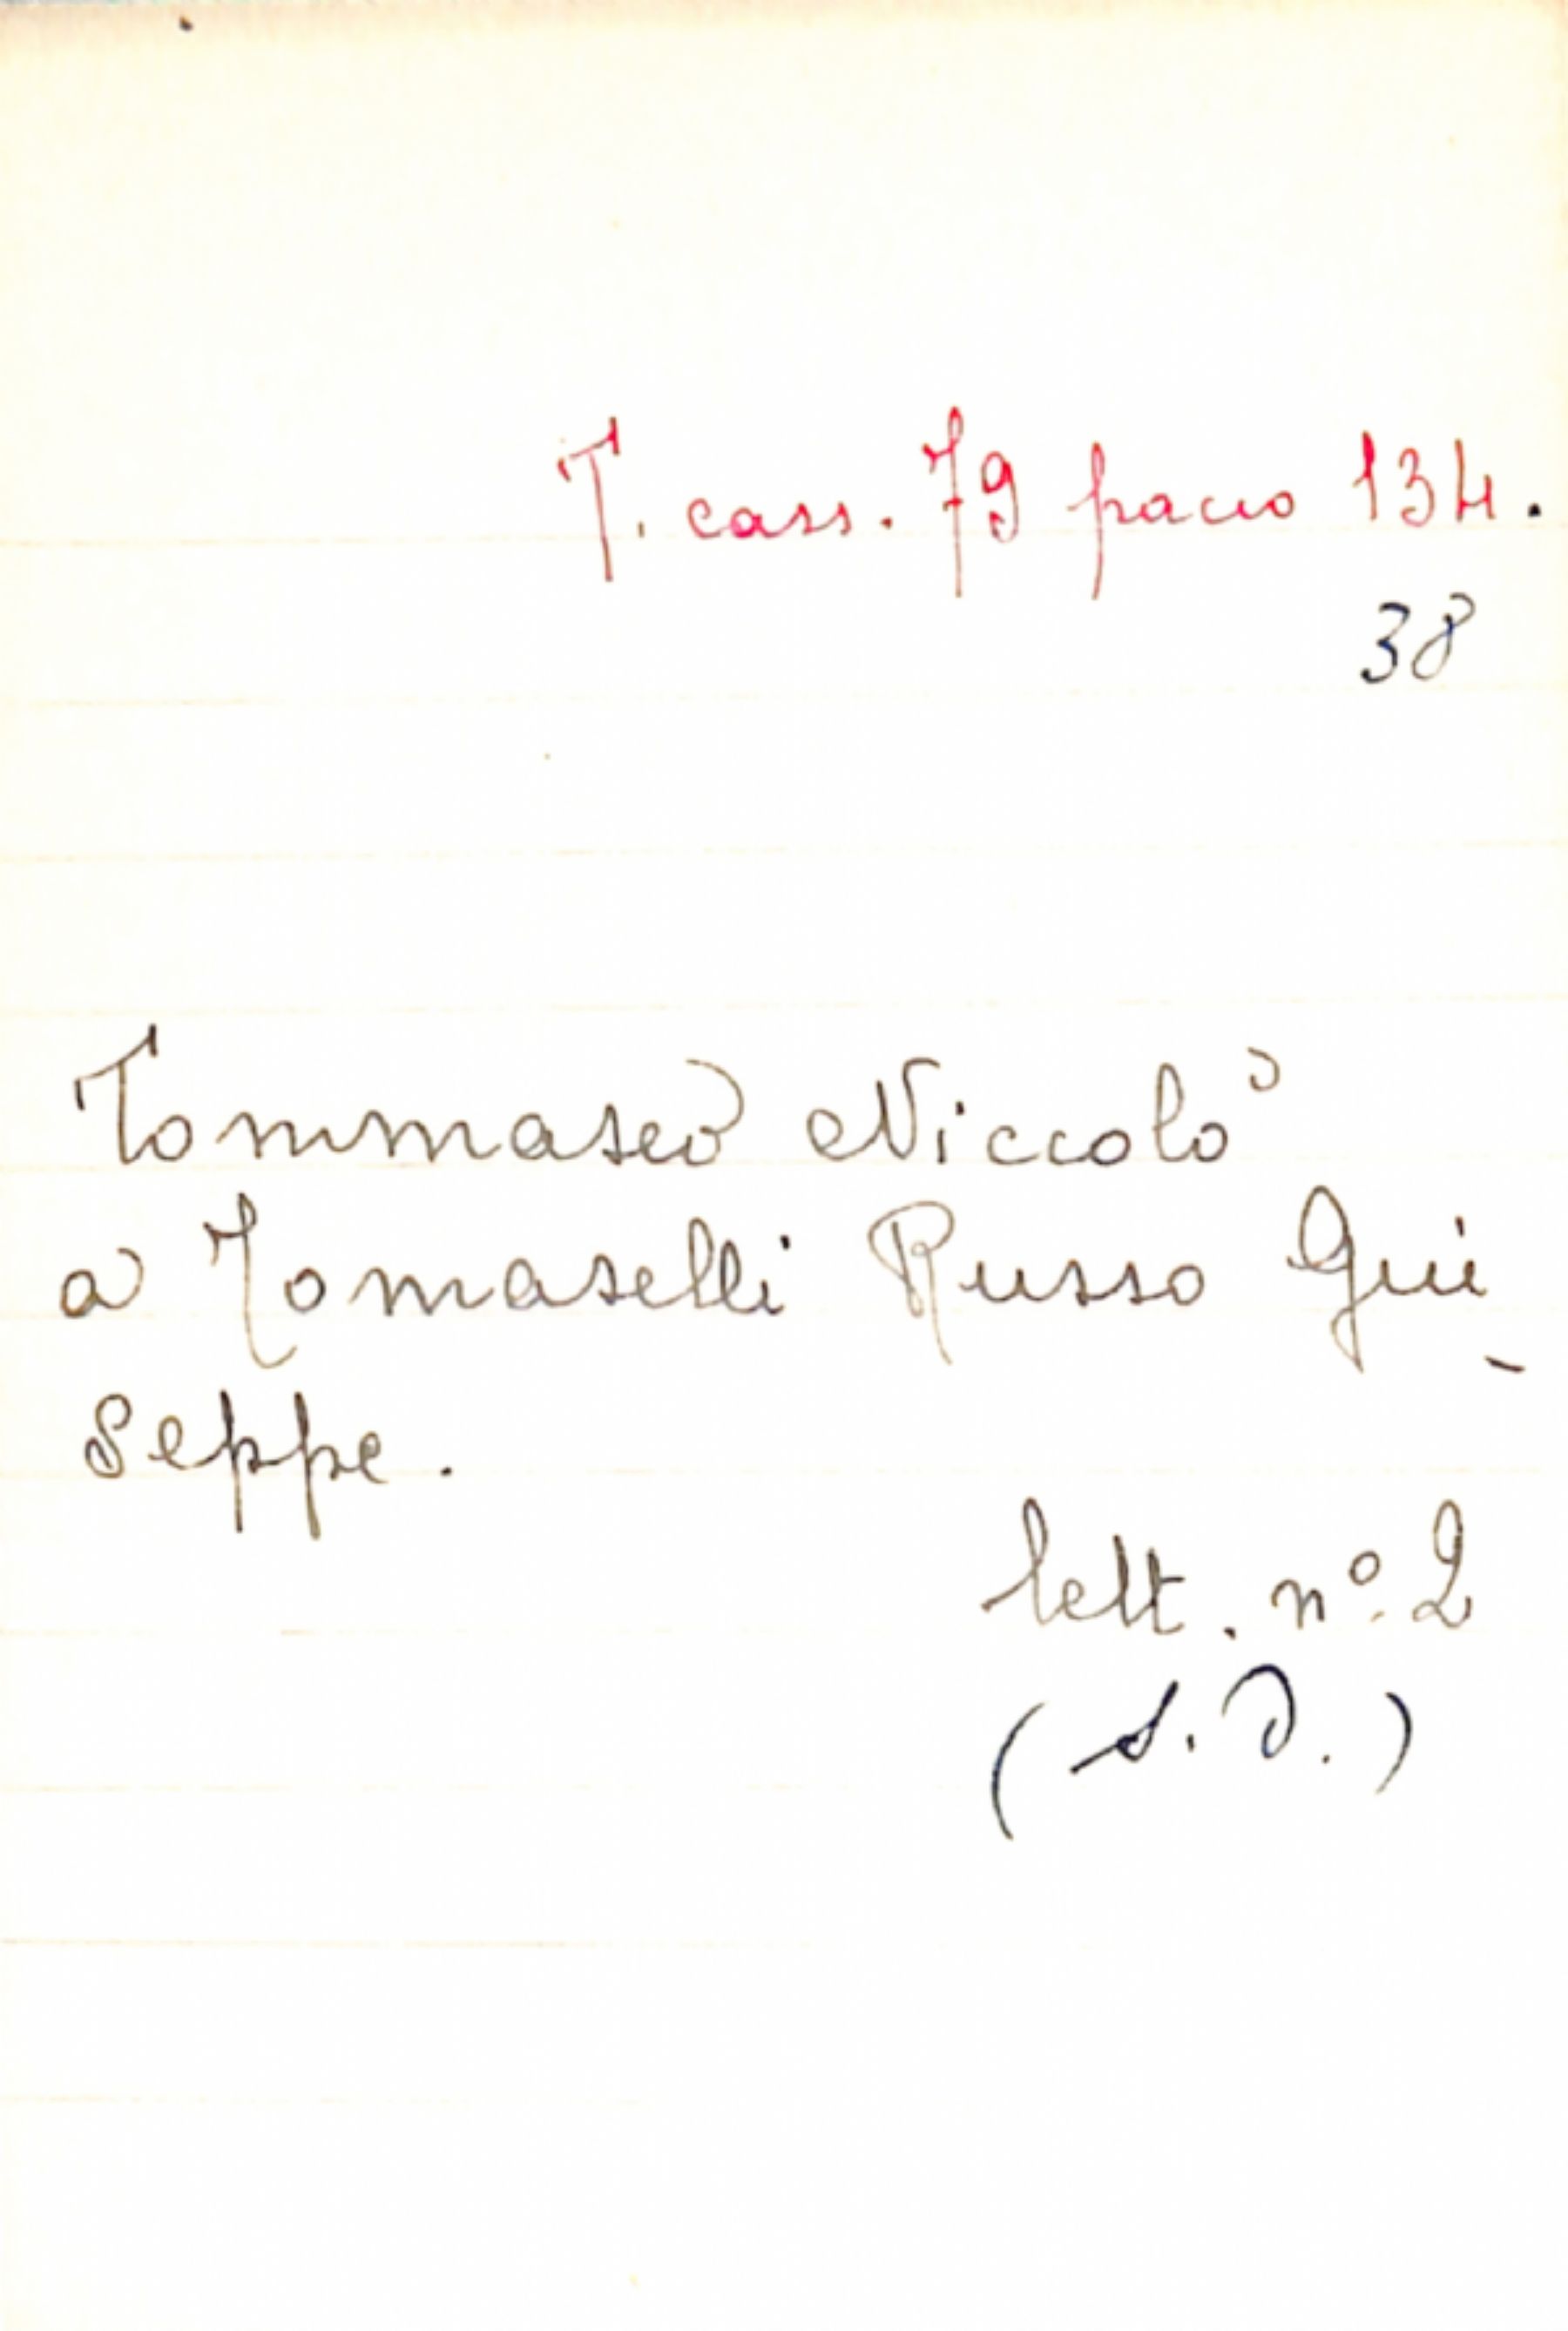 T. cass. 79 pacco 134.
38
Tommaseo Niccolò
a Tomaselli Russo Giu-
seppe.
lett. nº. 2
(S. D.)